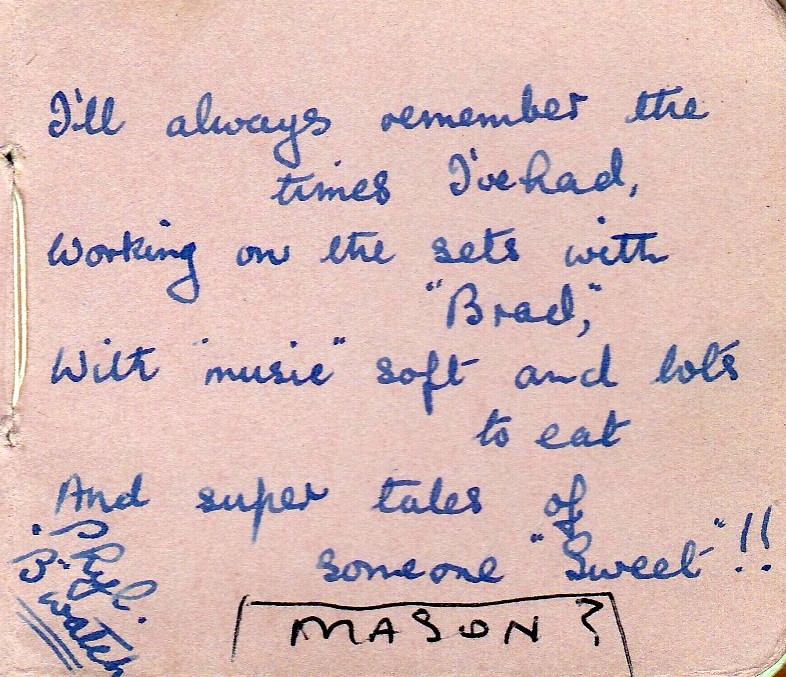 I'll always remember the
times I've had,
Working on the sets with
"Brad,"
With "music" soft and lots
to eat
And super tales of
someone "Sweet"!!
Phyl.
"B" watch
MASON?